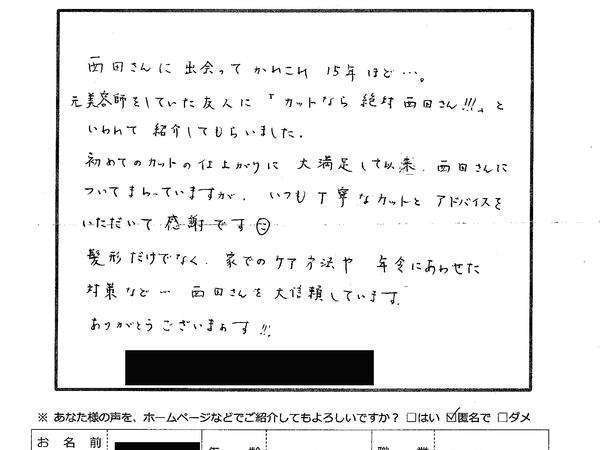 西田さんに 出会って かれこれ 15年 ほど…。
元美容師をしていた友人に 「カットなら 絶対 西田さん!!!」と
いわれて 紹介してもらいました.
初めてのカットの仕上がりに 大満足して以来. 西田さんに
ついてまわっていますが. いつも 丁寧なカットと アドバイスを
いただいて 感謝です☺
髪形だけでなく. 家でのケア方法や 年令にあわせた
対策など… 西田さんを 大信頼しています.
ありがとうございまぁす!!!
※ あなた様の声を、ホームページなどでご紹介してもよろしいですか? □はい ☑匿名で □ダメ
お 名 前